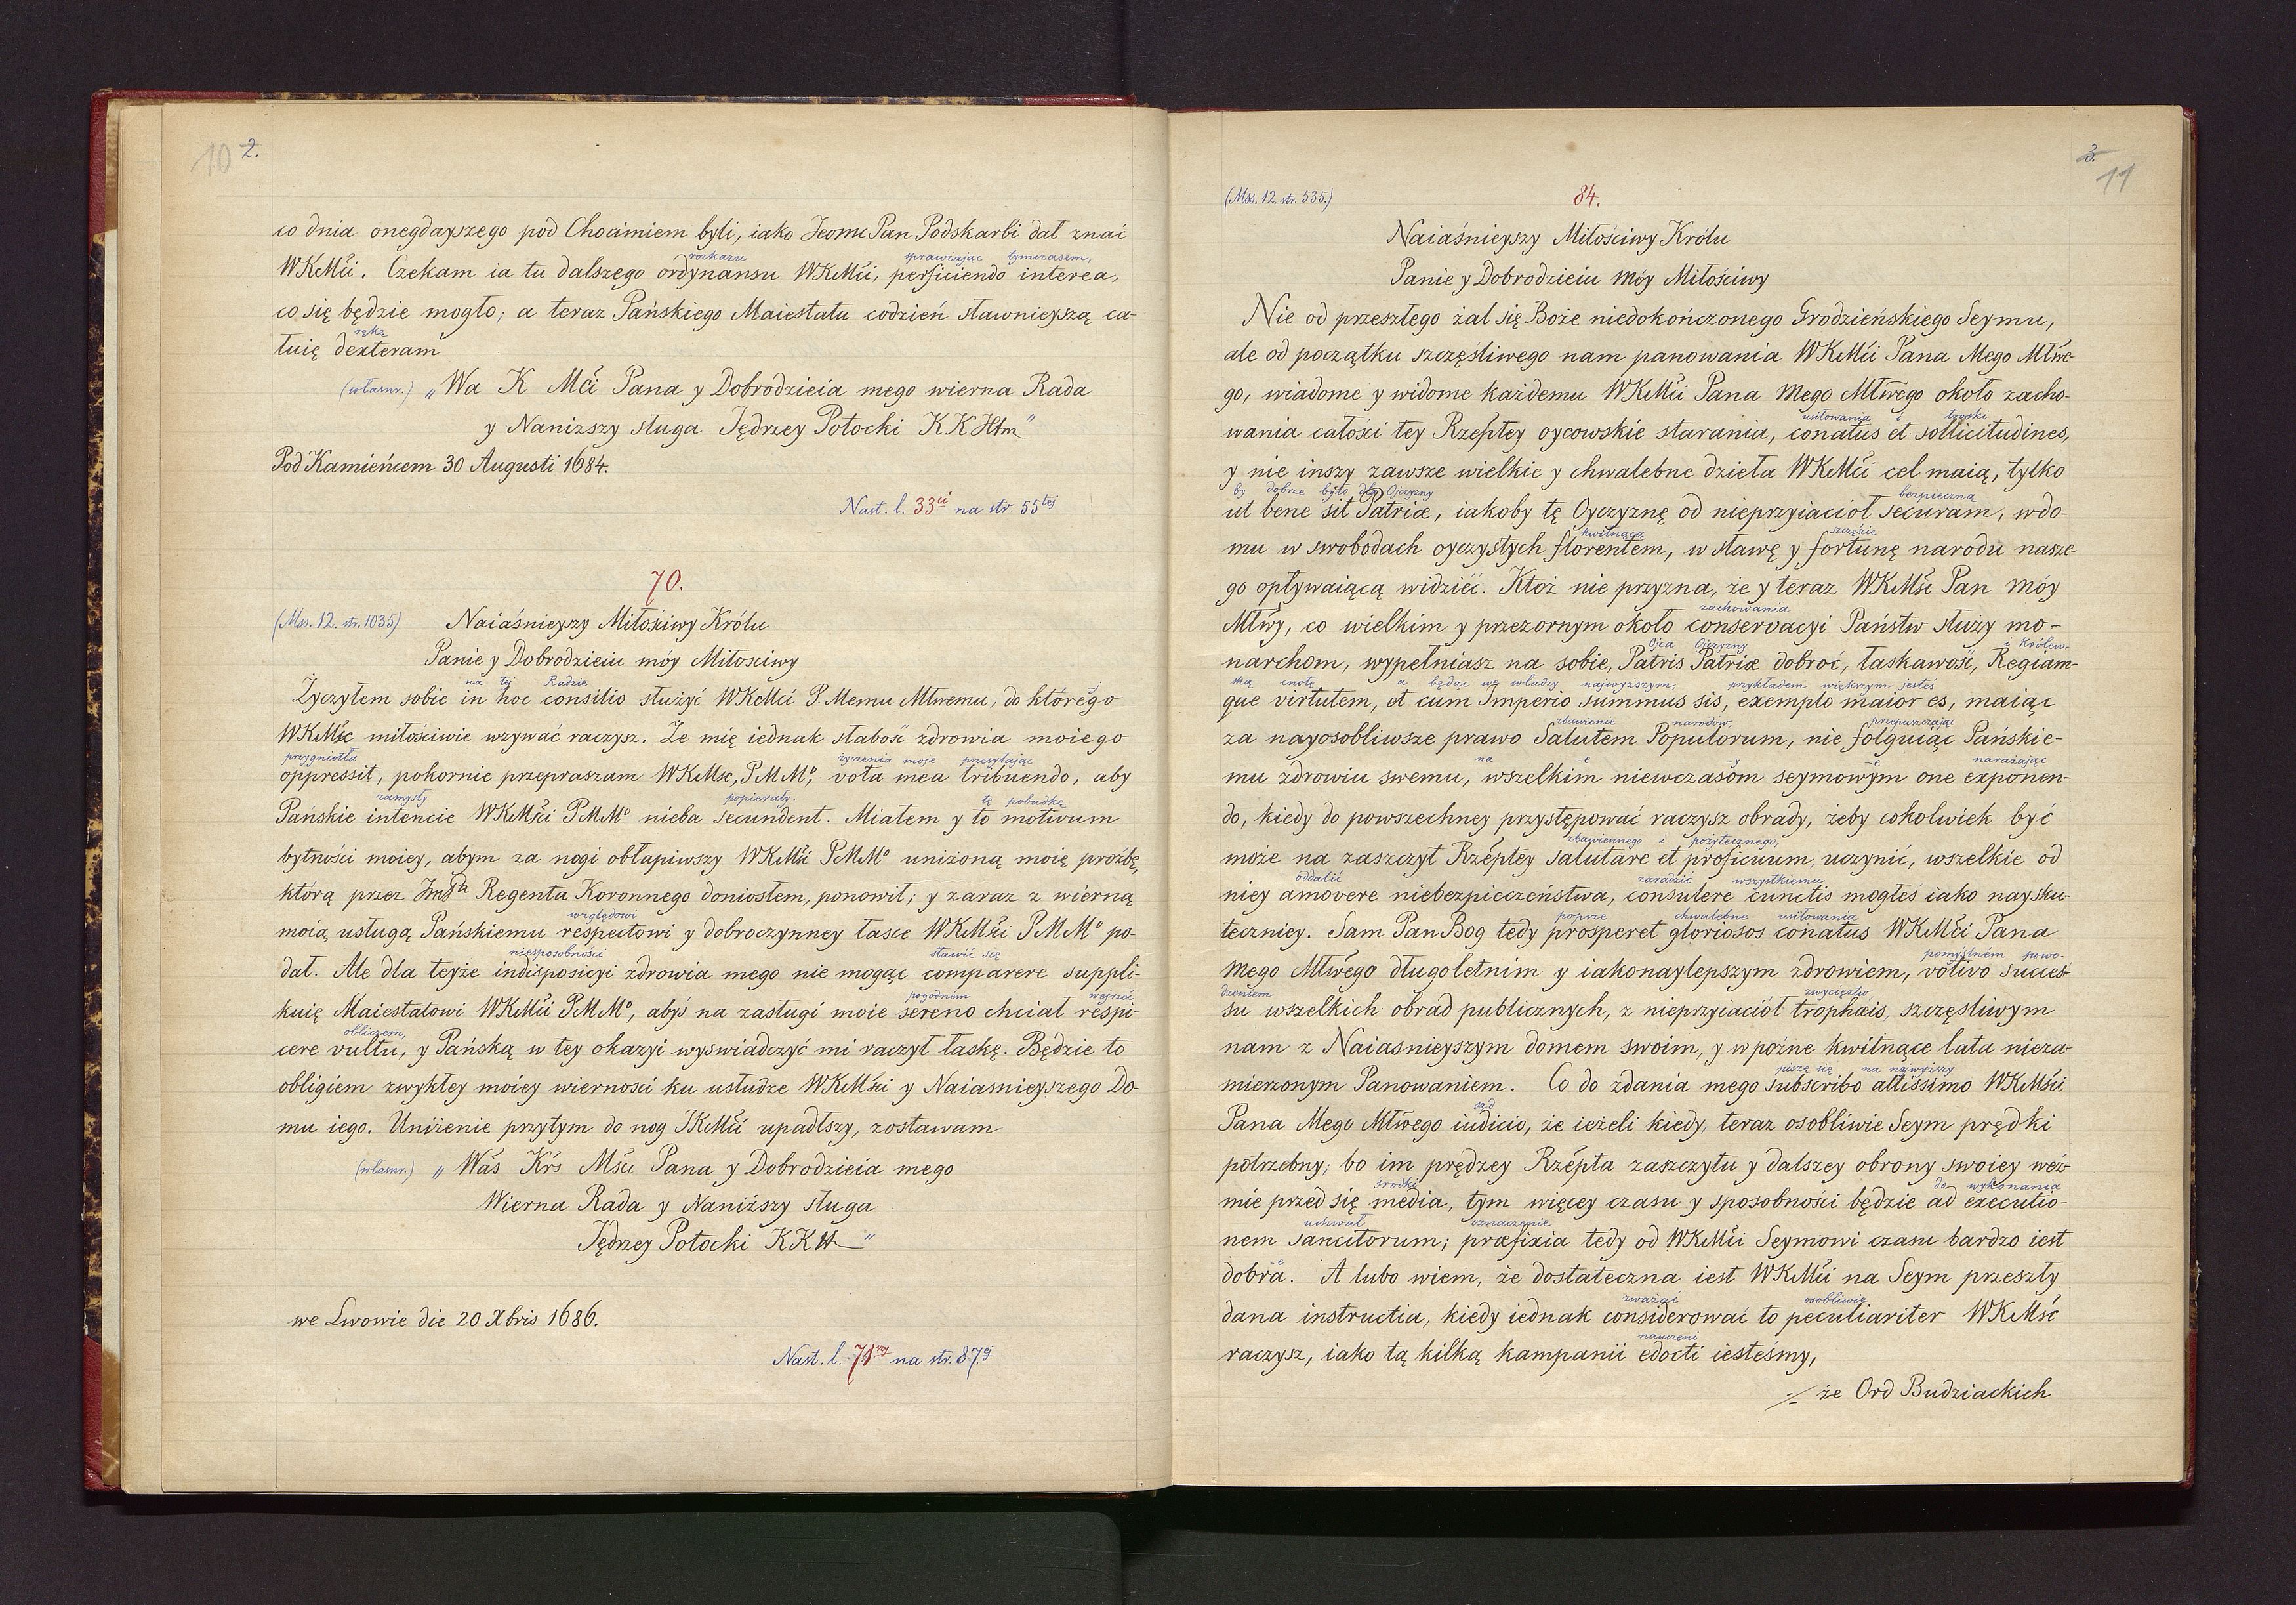 10 2.
co dnia onegdayszego pod Chocimiem byli, iako Jeomc Pan Podskarbi dał znać
rozkazu sprawiając tymczasem,
WKMći. Czekam ia tu dalszego ordynansu WKMći, perficiendo interea,
co się będzie mogło; a teraz Pańskiego Maiestatu codzień sławnieyszą ca-
rękę
łuię dexteram
(własnr.) „Wa K Mći Pana y Dobrodzieia mego wierna Rada
y Naniższy sługa Jędrzey Potocki KK Htm"
Pod Kamieńcem 30 Augusti 1684.
Nast. l. 33ci na str. 55tej
70.
(Mss. 12. str. 1035) Naiaśnieyszy Miłościwy Królu
Panie y Dobrodzieiu móy Miłosciwy
na tej Radzie
Życzyłem sobie in hoc consilio służyć WKMći P. Memu Młwemu, do którego
WKMść miłościwie wzywać raczysz. Że mię iednak słabość zdrowia moiego
przygniotła życzenia moje przesyłając
oppressit, pokornie przepraszam WKMsc, PMMo, vota mea tribuendo, aby
zamysły popierały. tę pobudkę
Pańskie intencie WKMści PMMo nieba secundent. Miałem y to motivum
bytności moiey, abym za nogi obłapiwszy WKMści PMMo uniżoną moię proźbę,
którą przez JmPa Regenta Koronnego doniosłem, ponowił; y zaraz z wierną
względowi
moią usługą Pańskiemu respectowi y dobroczynney łasce WKMści PMMo po-
niesposobności stawić się
dał. Ale dla teyże indisposicyi zdrowia mego nie mogąc comparere suppli-
pogodnem wejrzeć
kuię Maiestatowi WKMści PMMo, abyś na zasługi moie sereno chciał respi-
obliczem,
cere vultu, y Pańską w tey okazyi wyswiadczyć mi raczył łaskę. Będzie to
obligiem zwykłey moiey wiernosci ku usłudze WKMści y Naiasnieyszego Do-
mu iego. Uniżenie przytym do nog JKMści upadłszy, zostawam
(własnr.) „Wás Krs Mści Pana y Dobrodzieia mego
Wierna Rada y Naniższy sługa
Jędrzey Potocki KKH"
we Lwowie die 20 Xbris 1686.
Nast. l. 71szy na str. 87ej
3.
11
(Mss. 12. str. 535.) 84.
Naiaśnieyszy Miłościwy Królu
Panie y Dobrodzieiu Móy Miłościwy
Nie od przeszłego żal się Boże niedokończonego Grodzieńskiego Seymu,
ale od początku szczęśliwego nam panowania WKMći Pana Mego Młwe-
go, wiadome y widome każdemu WKMći Pana Mego Młwego około zacho-
usiłowania i troski
wania całości tey Rzeptey oycowskie starania, conatus et sollicitudines,
y nie inszy zawsze wielkie y chwalebne dzieła WKMći cel maią, tylko
by dobrze było dla Ojczyzny bezpieczną
ut bene sit Patriæ, iakoby tę Oyczyznę od nieprzyiaciół securam, w do-
kwitnącą szczęście
mu w swobodach oyczystych florentem, w sławę y fortunę narodu nasze-
go opływaiącą widzieć. Ktoż nie przyzna, że y teraz WKMść Pan Móy
zachowania
Młwy, co wielkim y przezornym około conservacyi Państw służy mo-
Ojca Ojczyzny i królew-
narchom, wypełniasz na sobie, Patris Patriæ dobroć, łaskawość, Regiam-
ską cnotę a będąc we władzy najwyższym, przykładem większym jesteś
que virtutem, et cum Imperio summus sis, exemplo maior es, maiąc
zbawienie narodów, przepuszczając
za nayosobliwsze prawo Salutem Populorum, nie folguiąc Pańskie-
na narażając
mu zdrowiu swemu, wszelkim niewczasom seymowym one exponen-
do, kiedy do powszechney przystępować raczysz obrady, żeby cokolwiek być
zbawiennego i pożytecznego,
może na zaszczyt Rzeptey salutare et proficuum uczynić, wszelkie od
oddalić zaradzić wszystkiemu
niey amovere niebezpieczeństwa, consulere cunctis mogłeś iako naysku-
poprze chwalebne usiłowania
teczniey. Sam Pan Bog tedy prosperet gloriosos conatus WKMći Pana
pomyślném powo-
Mego Młwego długoletnim y iakonaylepszym zdrowiem, votivo succes-
dzeniem zwycięztw,
su wszelkich obrad publicznych, z nieprzyiaciół trophæis, szczęśliwym
nam z Naiasnieyszym domem swoim, y w poźne kwitnące lata nieza-
piszę się na najwyższy
mierzonym Panowaniem. Co do zdania mego subscribo altissimo WKMści
sąd
Pana Mego Młwego iudicio, że ieżeli kiedy, teraz osobliwie Seym prędki
potrzebny; bo im prędzey Rzepta zaszczytu y dalszey obrony swoiey weź-
środki do wykonania
mie przed się media, tym więcey czasu y sposobności będzie ad executio-
uchwał oznaczenie
nem sancitorum; præfixia tedy od WKMći Seymowi czasu bardzo iest
dobra. A lubo wiem, że dostateczna iest WKMći na Seym przeszły
zważać osobliwie
dana instructia, kiedy iednak considerować to peculiariter WKMść
nauczeni
raczysz, iako tą kilką kampanii edocti iesteśmy,
że Ord Budziackich